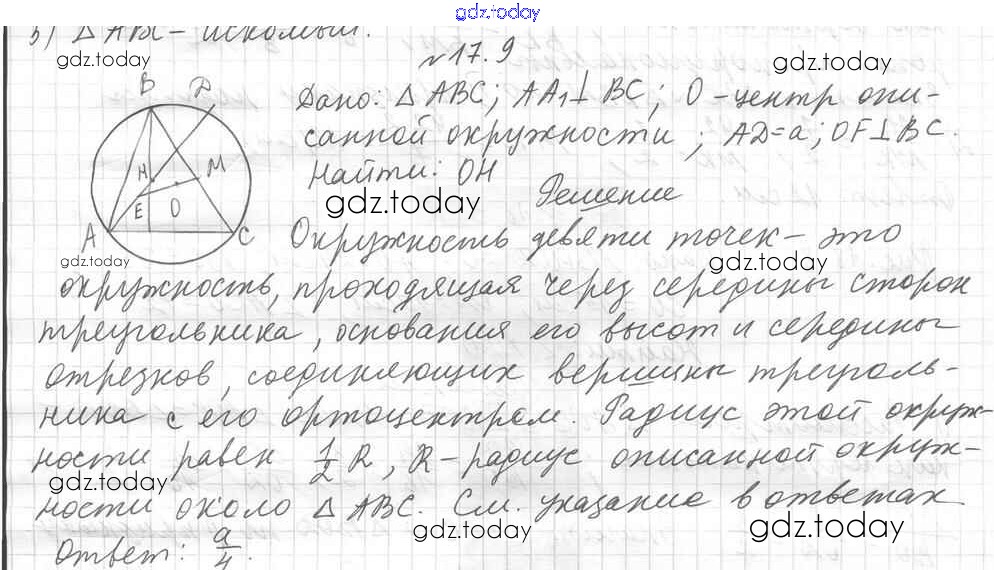 gdz.today
3) △ABC - искомый.
gdz.today
№17.9
gdz.today
B D
H M
E O
A C
gdz.today
Дано: △ABC; AA₁⊥BC; O-центр опи-
санной окружности; AD=a; OF⊥BC.
Найти: OH
gdz.today
Решение
Окружность девяти точек - это
gdz.today
окружность, проходящая через середины сторон
треугольника, основания его высот и середины
отрезков, соединяющих вершины треуголь-
ника с его ортоцентром. Радиус этой окруж-
ности равен 1/2 R, R-радиус описанной окруж-
gdz.today
ности около △ABC. См. указание в ответах
gdz.today
gdz.today
Ответ: a/4.